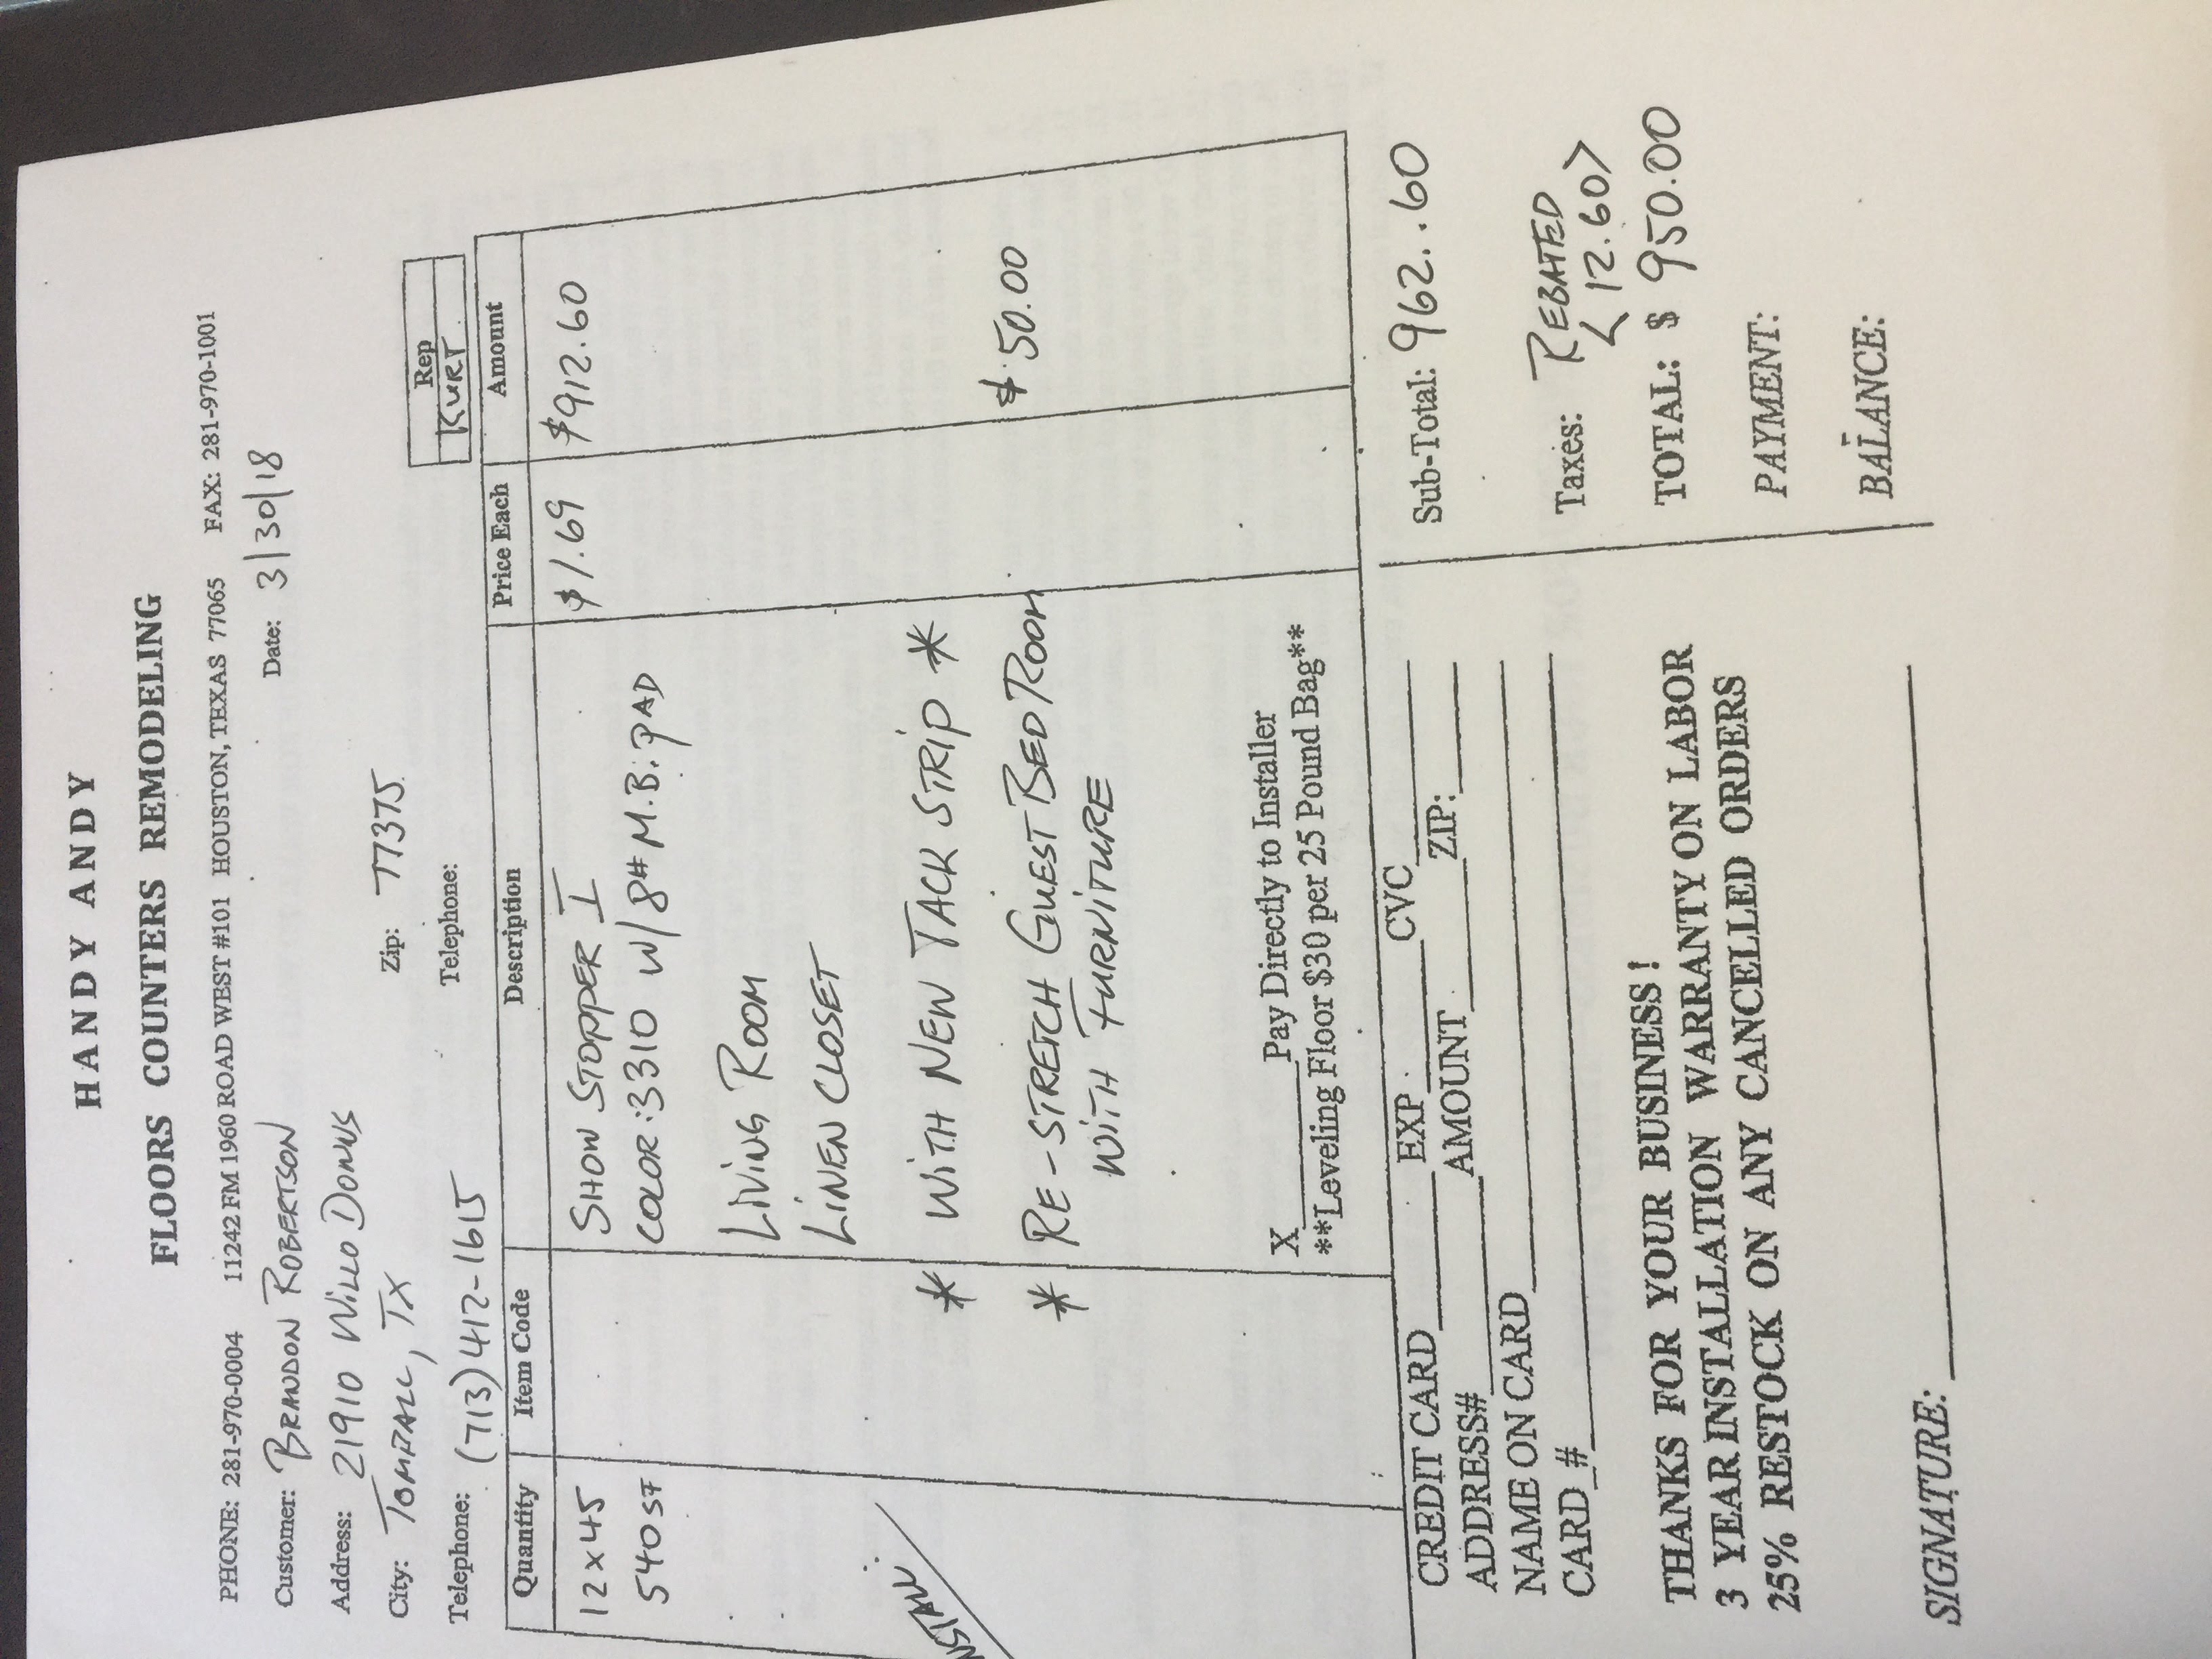 HANDY ANDY
FLOORS COUNTERS REMODELING
PHONE: 281-970-0004 11242 FM 1960 ROAD WEST #101 HOUSTON, TEXAS 77065 FAX: 281-970-1001
Customer: BRANDON ROBERTSON Date: 3/30/18
Address: 21910 WILLO DOWNS
City: TOMBALL, TX Zip: 77375
Telephone: (713) 412-1615 Telephone:
Rep
KURT
Quantity Item Code Description Price Each Amount
12 x 45 SHOW STOPPER I $1.69 $912.60
540 SF COLOR: 3310 W/ 8# M.B. PAD
LIVING ROOM
LINEN CLOSET
* WITH NEW TACK STRIP *
* RE-STRETCH GUEST BED ROOM $50.00
WITH FURNITURE
X______Pay Directly to Installer
**Leveling Floor $30 per 25 Pound Bag**
CREDIT CARD______ EXP______CVC______
ADDRESS#______AMOUNT______ZIP:______
NAME ON CARD______
CARD_#______
Sub-Total: 962..60
Taxes: REBATED
<12.60>
TOTAL: $ 950.00
PAYMENT:
BALANCE:
THANKS FOR YOUR BUSINESS!
3 YEAR INSTALLATION WARRANTY ON LABOR
25% RESTOCK ON ANY CANCELLED ORDERS
SIGNATURE:______